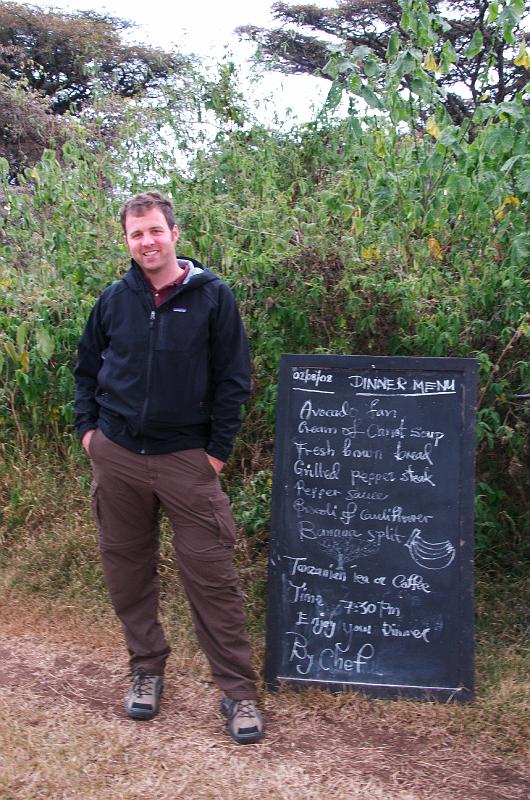 02/08/08 DINNER MENU
Avocado fan
Cream of Carrot soup
Fresh brown bread
Grilled pepper steak
Pepper sauce
Brocoli of Cauliflower
Banana split
Tanzanian tea or Coffee
Time 7:30 Pm
Enjoy your Dinner
By Chef